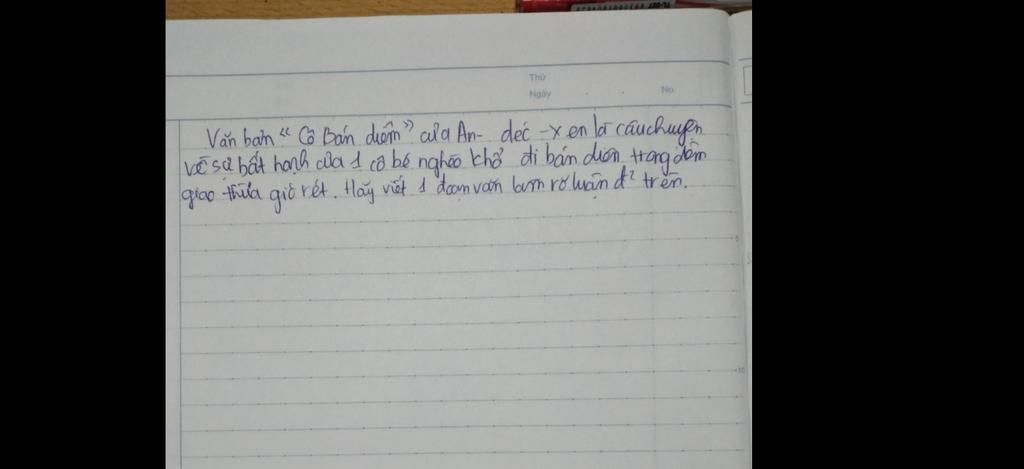 Thứ
Ngày No.
Văn bản “Cô Bán diêm” của An- đéc -x en là câu chuyện
về sự bất hạnh của 1 cô bé nghèo khổ đi bán diêm trong đêm
giao thừa giá rét. Hãy viết 1 đoạn văn làm rõ luận đ² trên.
5
10